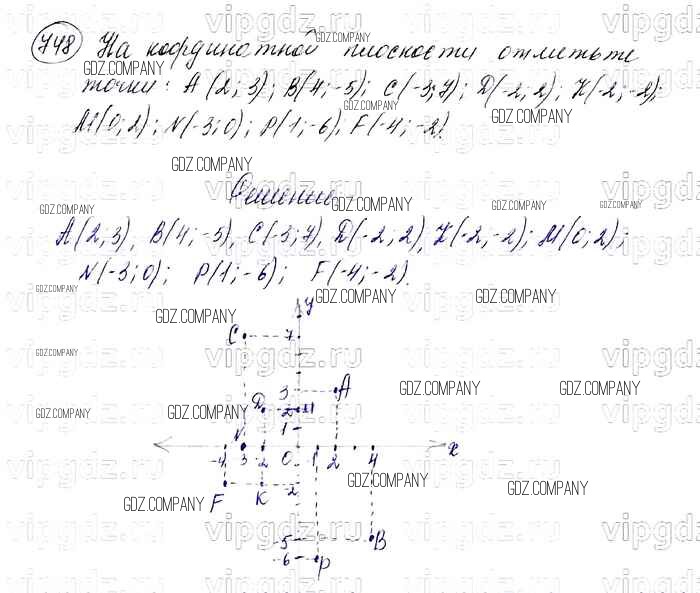 748 На координатной плоскости отметьте
точки: А(2; 3); В(4; -5); С(-3; 7); Д(-2; 2); К(-2; -2);
М(0; 2); N(-3; 0); Р(1; -6), F(-4; -2).
Решение
А(2; 3), В(4; -5), С(-3; 7), Д(-2; 2), К(-2; -2); М(0; 2);
N(-3; 0); Р(1; -6); F(-4; -2).
y
C 7
3 A
Д 2 М
1
N
-4 3 -2 0 1 2 4 x
F K -2
-5 B
-6 P
GDZ.COMPANY
vipgdz.ru